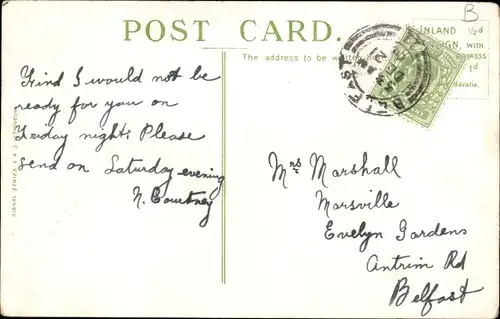 B
POST CARD.
INLAND ½d
The address to be
BELFAST
Find I would not be
ready for you on
Friday night. Please
send on Saturday evening
N. Courtney
Mrs Marshall
Marsville
Evelyn Gardens
Antrim Rd
Belfast